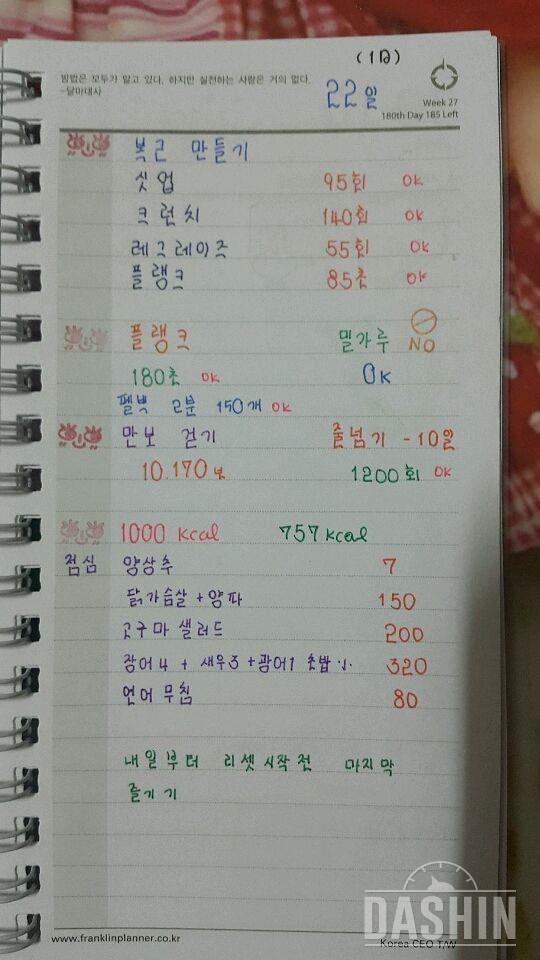 (1일)
방법은 모두가 알고 있다. 하지만 실천하는 사람은 거의 없다.
-달마대사
22일
Week 27
180th Day 185 Left
복근 만들기
싯업 95회 OK
크런치 140회 OK
레그레이즈 55회 OK
플랭크 85초 OK
플랭크 밀가루 NO
180초 OK OK
펠빅 2분 150개 OK
만보 걷기 줄넘기 -10일
10.170보 1200회 OK
1000 kcal 757 kcal
점심 양상추 7
닭가슴살 + 양파 150
고구마 샐러드 200
장어4 + 새우3 + 광어1 초밥 320
연어 무침 80
내일부터 리셋 시작 전 마지막
즐기기
www.franklinplanner.co.kr
Korea CEO T/W
DASHIN